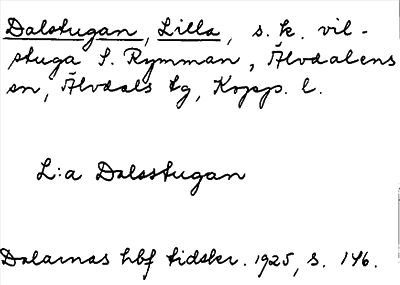 Dalstugan, Lilla, s. k. vil-
stuga S. Rymman, Älvdalens
sn, Älvdals tg, Kopp. l.
L:a Dalsstugan
Dalarnas hbf tidskr. 1925, s. 146.